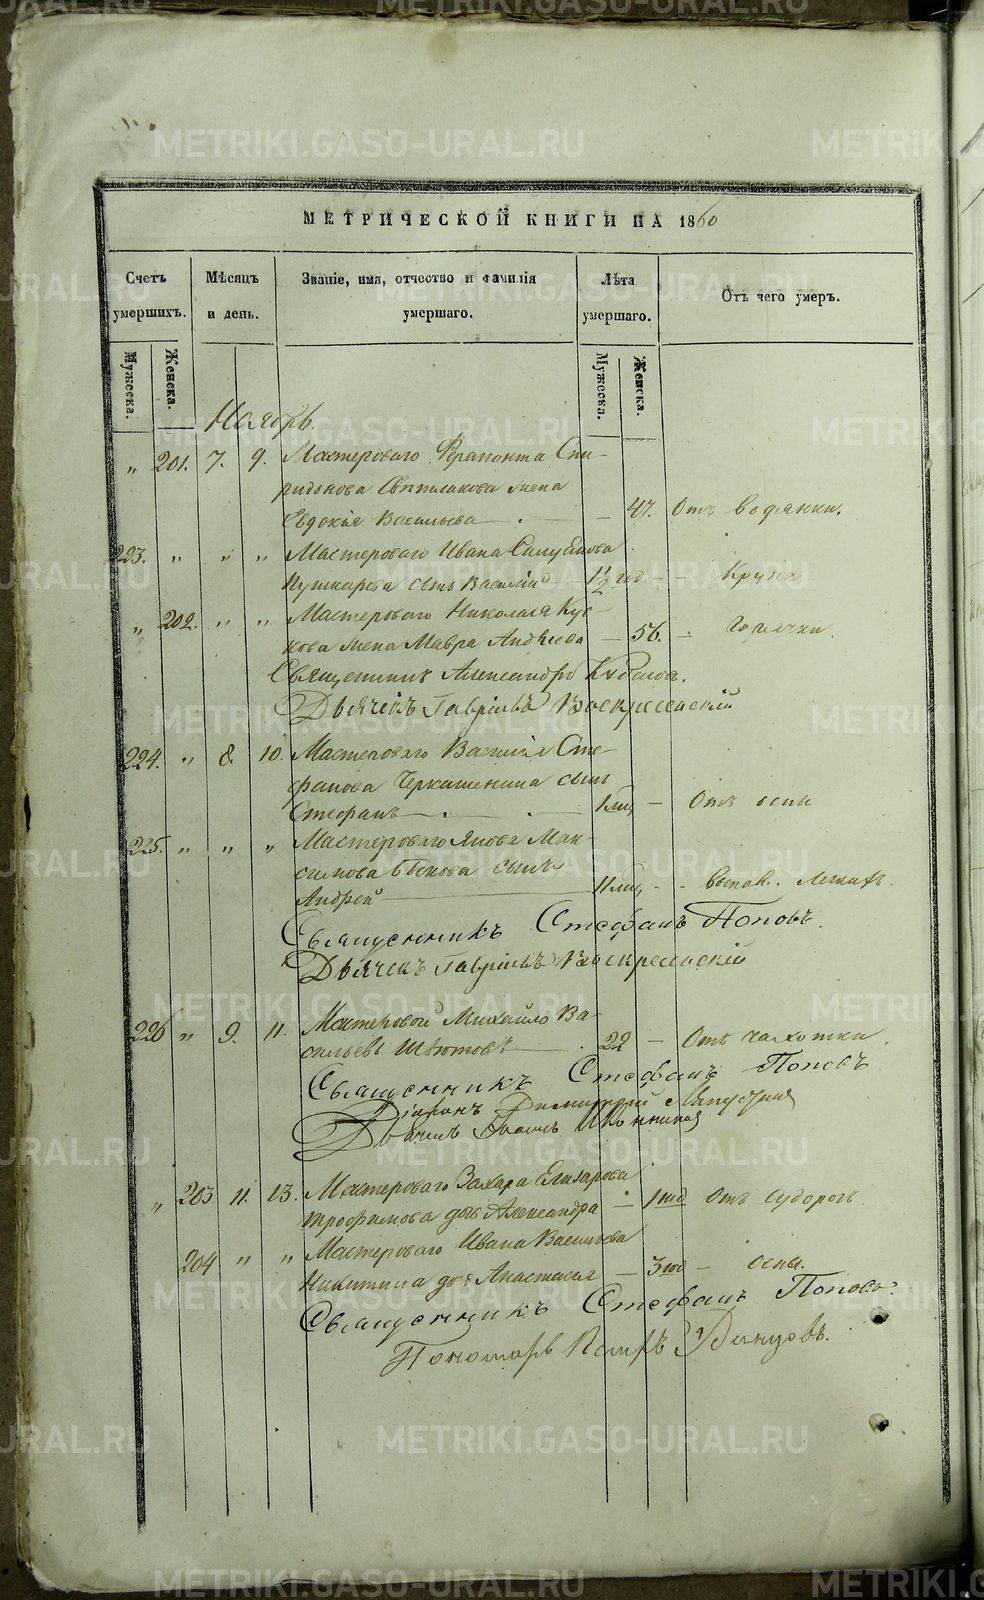 МЕТРИЧЕСКОЙ КНИГИ НА 1860
Счетъ умершихъ.
Мѣсяцъ и день.
Званіе, имя, отчество и фамилія умершаго.
Лѣта умершаго.
Отъ чего умеръ.
Мужеска.
Женска.
Мужеска.
Женска.
Ноябрь.
„ 201. 7. 9. Мастероваго Ферапонта Спи-
ридонова жена
Евдокія Васильева — 47. Отъ водянки.
223. „ „ „ Мастероваго Ивана
Пушкарева сынъ Василій 1 1/2 год - - Крупа
„ 202. „ „ Мастероваго Николая Кус-
кова жена Мавра Андреева — 56. - Горячки.
Священникъ Александръ
Дьячекъ Гавріилъ Воскресенскій
224. „ 8. 10. Мастероваго Василія Сте-
фанова Черкашенина сынъ
Стефанъ — 1 мѣц — Отъ оспы
225. „ „ „ Мастероваго Якова Мак-
симова Быкова сынъ
Андрей — 11 мѣц - - Воспал. легкихъ.
Священникъ Стефанъ Поповъ.
Дьячекъ Гавріилъ Воскресенскій
226 „ 9. 11. Мастеровой Михайло Ва-
сильевъ — 22 — Отъ чахотки.
Священникъ Стефанъ Поповъ
Діаконъ Димитрій
Дьячекъ Иванъ Иконниковъ
„ 203 11. 13. Мастероваго Захара Елизарова
Трофимова дочь Александра — 1 год Отъ судорогъ.
204 „ „ Мастероваго Ивана Васильева
Никитина дочь Анастасія — 3 год - Оспы.
Священникъ Стефанъ Поповъ:
Пономарь Петръ
METRIKI.GASO-URAL.RU